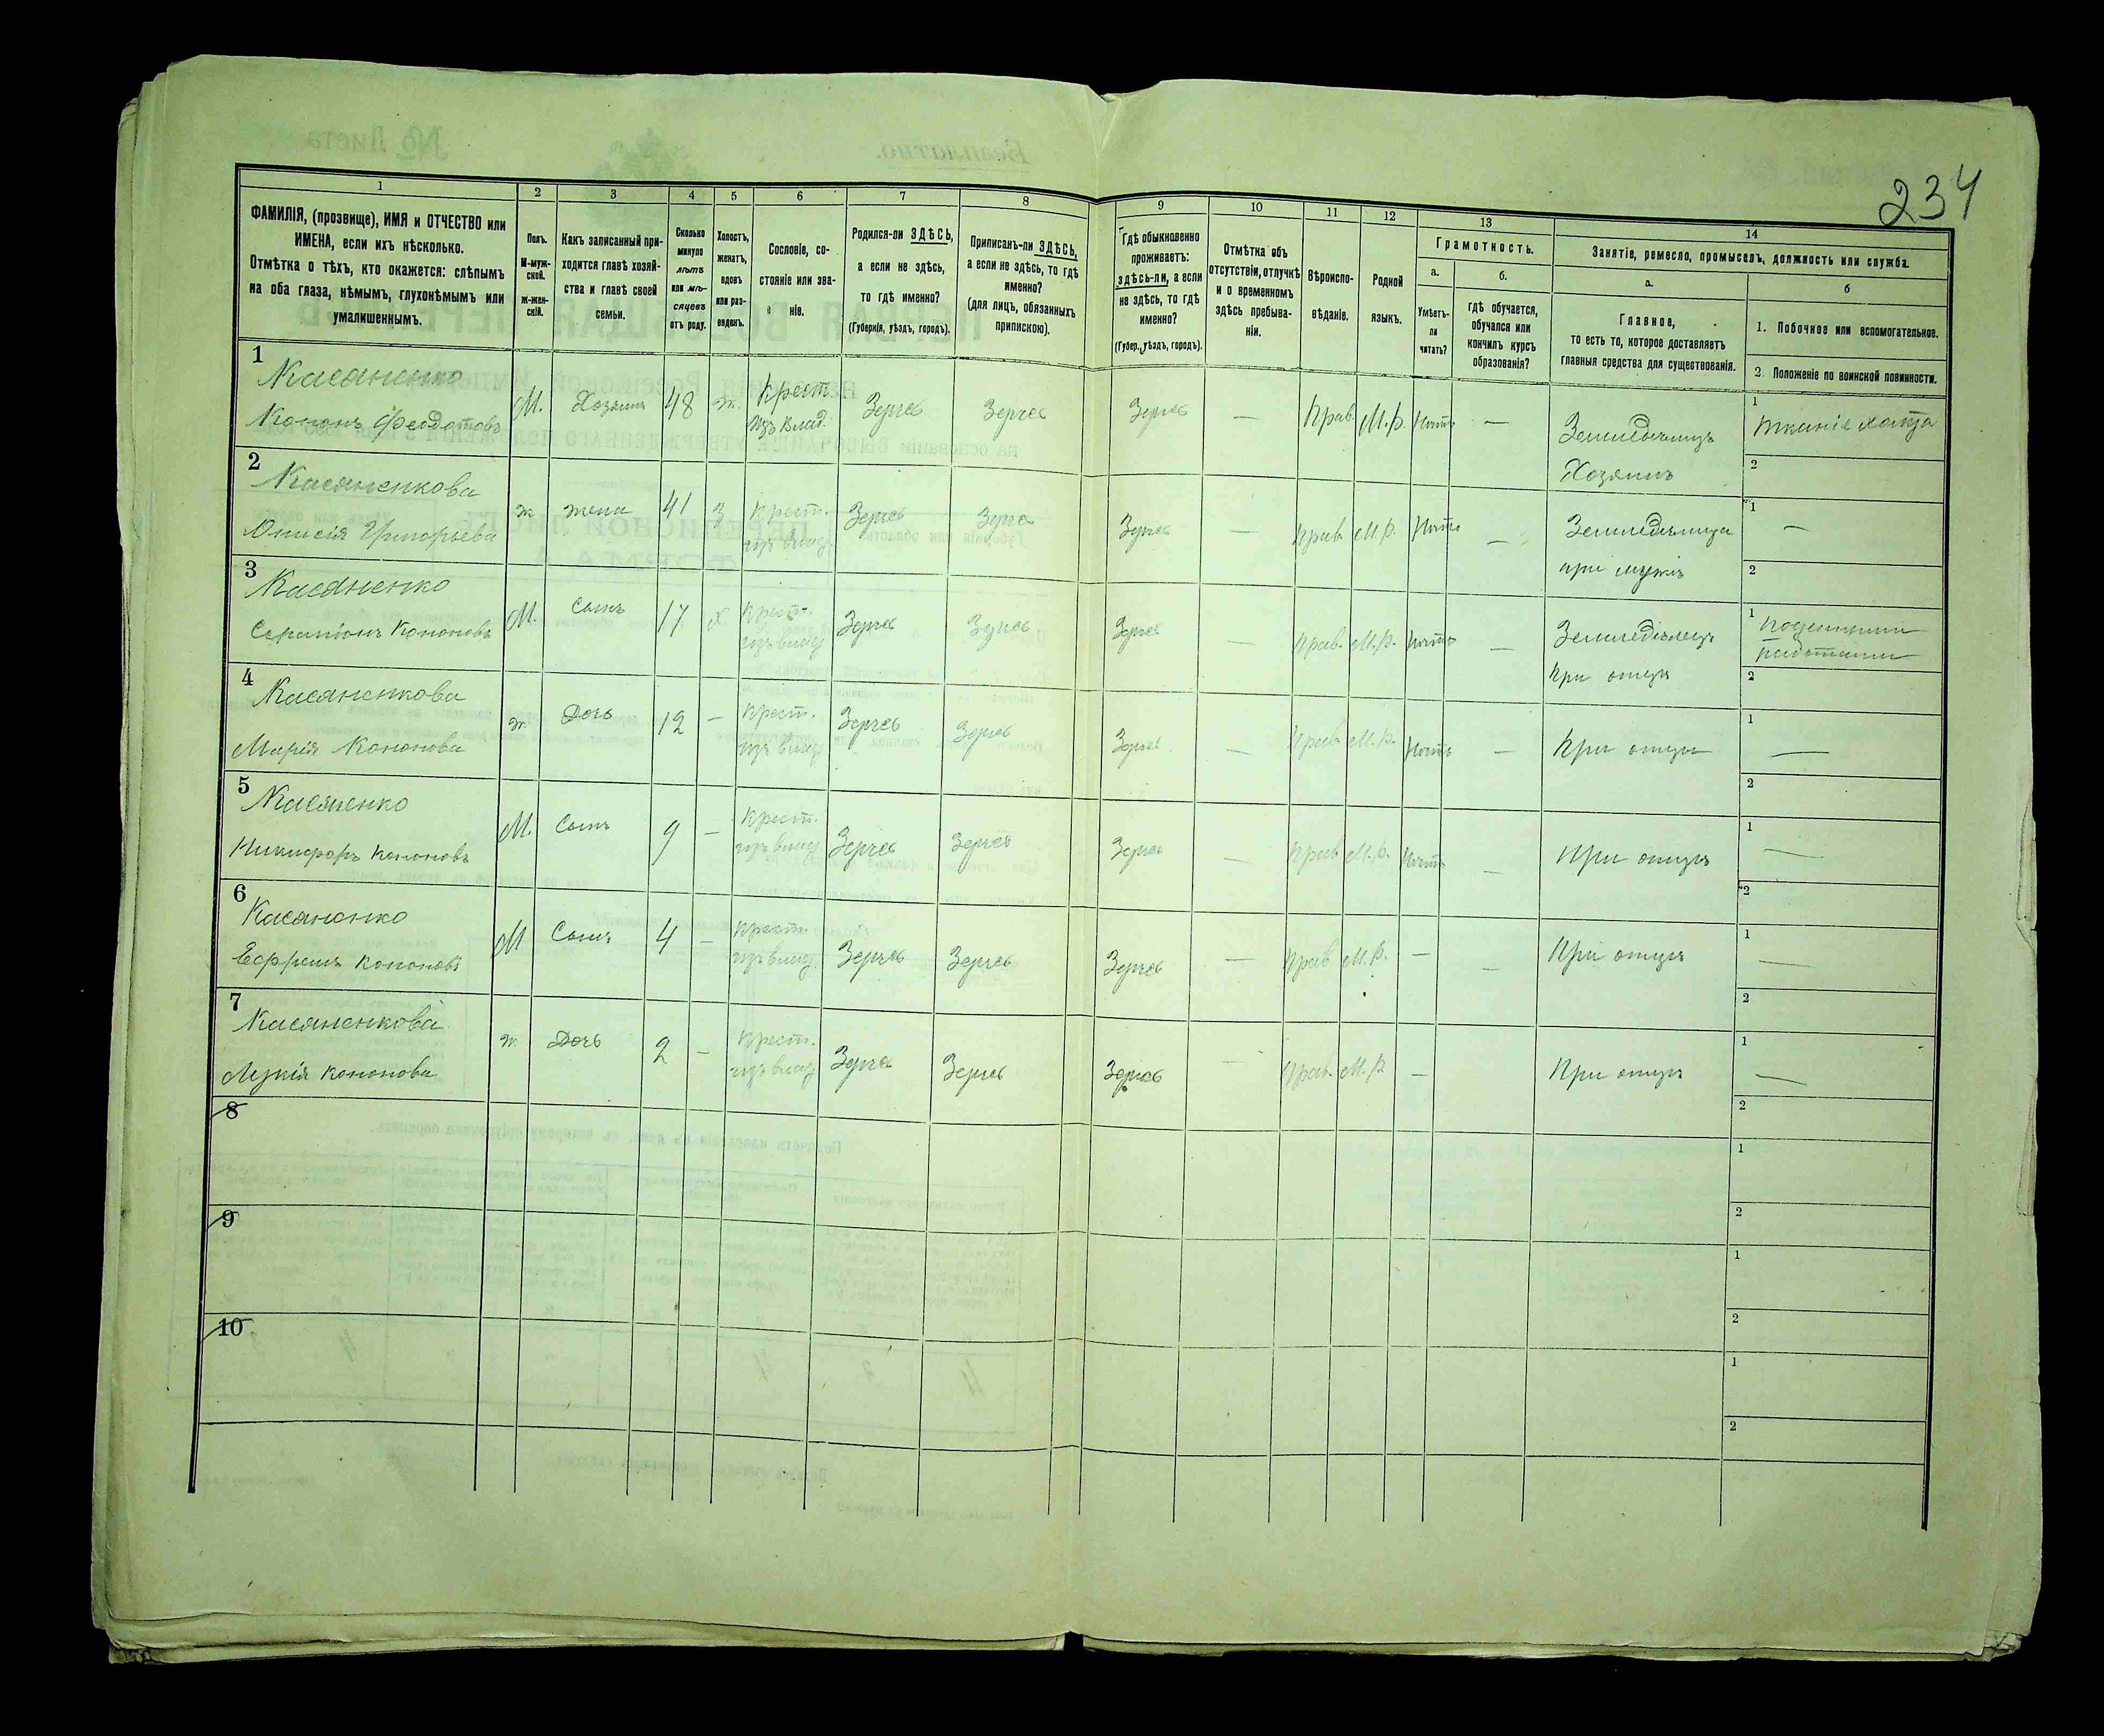 234
1 2 3 4 5 6 7 8 9 10 11 12 13 14
ФАМИЛІЯ, (прозвище), ИМЯ и ОТЧЕСТВО или
ИМЕНА, если ихъ нѣсколько.
Отмѣтка о тѣхъ, кто окажется: слѣпымъ
на оба глаза, нѣмымъ, глухонѣмымъ или
умалишеннымъ.
Полъ.
М-муж-
ской.
Ж-жен-
скій.
Какъ записанный при-
ходится главѣ хозяй-
ства и главѣ своей
семьи.
Сколько
минуло
лѣтъ
или мѣ-
сяцевъ
отъ роду.
Холостъ,
женатъ,
вдовъ
или раз-
веденъ.
Сословіе, со-
стояніе или зва-
ніе.
Родился-ли ЗДѢСЬ,
а если не здѣсь,
то гдѣ именно?
(Губернія, уѣздъ, городъ).
Приписанъ-ли ЗДѢСЬ,
а если не здѣсь, то гдѣ
именно?
(для лицъ, обязанныхъ
припискою).
Гдѣ обыкновенно
проживаетъ:
здѣсь-ли, а если
не здѣсь, то гдѣ
именно?
(Губер., уѣздъ, городъ).
Отмѣтка объ
отсутствіи, отлучкѣ
и о временномъ
здѣсь пребыва-
ніи.
Вѣроиспо-
вѣданіе.
Родной
языкъ.
Грамотность.
а.
Умѣетъ-
ли
читать?
б.
гдѣ обучается,
обучался или
кончилъ курсъ
образованія?
Занятіе, ремесло, промыселъ, должность или служба.
а.
Главное,
то есть то, которое доставляетъ
главныя средства для существованія.
б
1. Побочное или вспомогательное.
2. Положеніе по воинской повинности.
1
Касяненко
Кононъ Федотовъ
М. Хозяинъ 48 Ж. Крест. Изъ влад. Здѣсь Здѣсь Здѣсь — Прав. М.р. Нѣтъ —
Земледѣлецъ
Хозяинъ
1 Тканіе холста
2
2
Касяненкова
Онисія Григорьева
Ж Жена 41 З Крест. изъ влад. Здѣсь Здѣсь Здѣсь — Прав. М.р. Нѣтъ —
Земледѣлица
при мужѣ
1 —
2
3
Касяненко
Серапіонъ Кононовъ
М. Сынъ 17 Х Крест. изъ влад. Здѣсь Здѣсь Здѣсь — Прав. М.р. Нѣтъ —
Земледѣлецъ
при отцѣ
1 поденными
работами
2
4
Касяненкова
Марія Кононова
Ж. Дочь 12 — Крест. изъ влад. Здѣсь Здѣсь Здѣсь — Прав. М.р. Нѣтъ — При отцѣ
1 —
2
5
Касяненко
Никифоръ Кононовъ
М. Сынъ 9 — Крест. изъ влад. Здѣсь Здѣсь Здѣсь — Прав. М.р. Нѣтъ — При отцѣ
1 —
2
6
Касяненко
Ефремъ Кононовъ
М Сынъ 4 — Крест. изъ влад. Здѣсь Здѣсь Здѣсь — Прав. М.р. — — При отцѣ
1 —
2
7
Касяненкова
Лукія Кононова
Ж. Дочь 2 — Крест. изъ влад. Здѣсь Здѣсь Здѣсь — Прав. М.р. — При отцѣ
1 —
2
8
1
2
9
1
2
10
1
2